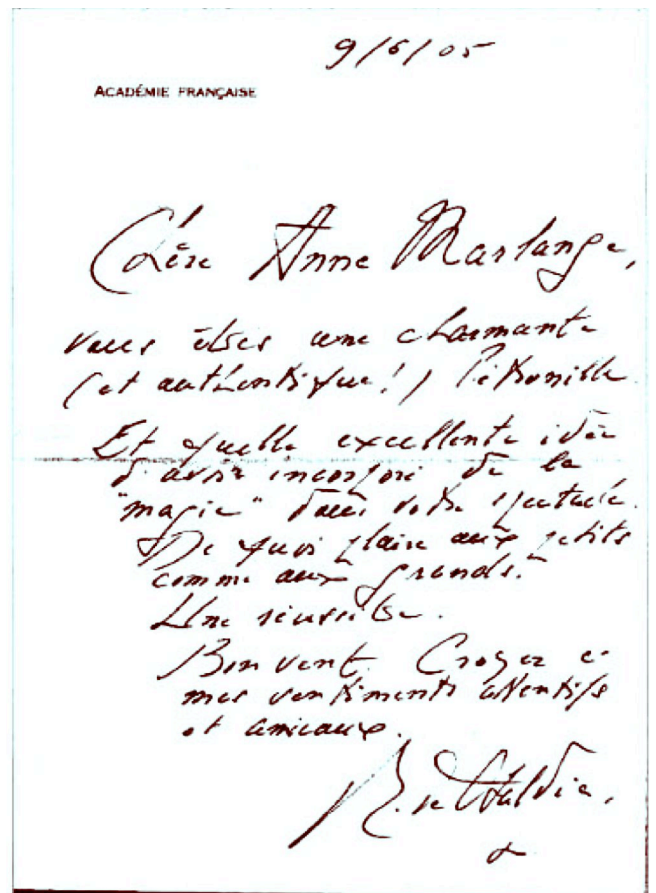 9/6/05
ACADÉMIE FRANÇAISE
Chère Anne Marlange,
vous êtes une charmante
(et authentique!) Pétronille
Et quelle excellente idée
d'avoir incorporé de la
"magie" dans votre spectacle.
De quoi plaire aux petits
comme aux grands.
Une réussite.
Bon vent. Croyez à
mes sentiments attentifs
et amicaux.
R. de Obaldia.